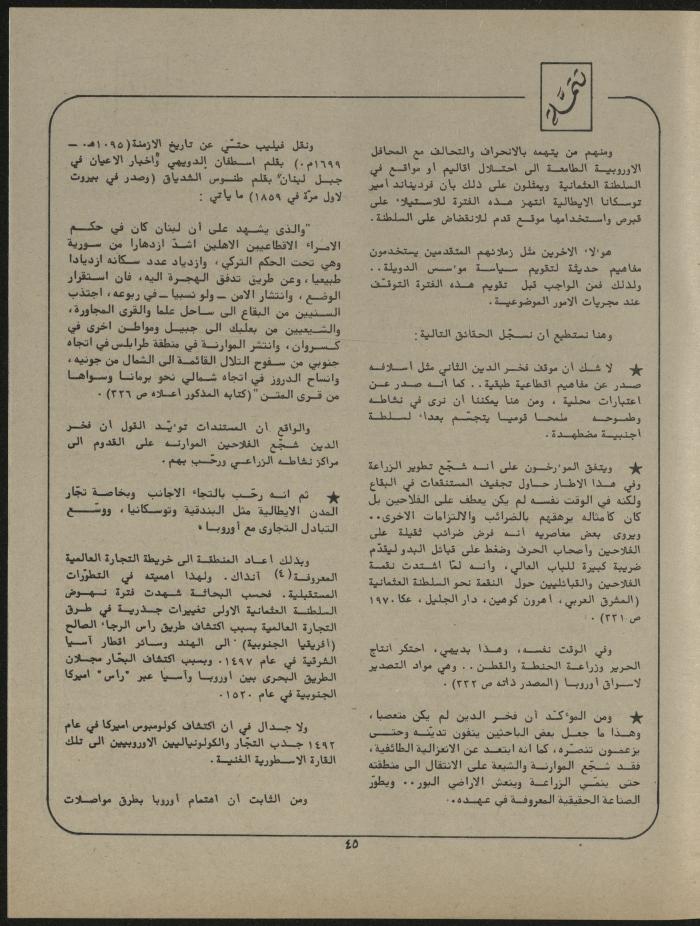 تتمة
ومنهم من يتهمه بالانحراف والتحالف مع المحافل
الاوروبيـة الطامعـة الى احتـلال اقاليم أو مواقـع في
السلطنة العثمانية ويمثلون على ذلك بأن فرديناند أمير
توسكانا الايطالية انتهز هـذه الفترة للاستيلاء على
قبرص واستخدامها موقـع قدم للانقضاض على السلطنة.
هؤلاء الاخرين مثل زملائهم المتقدمين يستخدمون
مفاهيم حديثة لتقويم سياسة مؤسس الدويلة..
ولذلك فمن الواجب قبل تقويم هـذه الفترة التوقـف
عند مجريات الامور الموضوعيـة.
وهنا نستطيع أن نسجّل الحقائق التالية:
★ لا شـك أن موقف فخـر الدين الثاني مثل أسلافـه
صدر عن مفاهيم اقطاعية طبقيـة.. كما انـه صدر عـن
اعتبارات محلية ، ومن هنا يمكننا أن نرى في نشاطـه
وطموحـه ملمحـا قوميـا يتجسّـم بعداء لسلطـة
أجنبيـة مضطهـدة.
★ ويتفق المؤرخـون على أنـه شجّـع تطوير الزراعة
وفي هـذا الاطـار حـاول تجفيف المستنقعات في البقاع
ولكنه في الوقت نفسـه لم يكن يعطف على الفلاحين بل
كان كأمثاله يرهقهم بالضرائب والالتزامات الاخرى..
ويروى بعض معاصريه أنـه فرض ضرائب ثقيلة على
الفلاحين وأصحاب الحرف وضغط على قبائل البدو ليقدّم
ضريبة كبيرة للباب العالي، وأنـه لمّا اشـتدت نقمـة
الفلاحين والقبائليين حول النقمة نحو السلطنة العثمانية
(المشرق العربي، أهرون كوهين، دار الجليل، عكا ١٩٧٠
ص ٢٢١) .
وفي الوقت نفسـه، وهـذا بديهي، احتكر انتاج
الحرير وزراعـة الحنطـة والقطـن.. وهي مواد التصدير
لاسـواق أوروبـا (المصدر ذاته ص ٢٢٢) .
★ ومن المؤكـد أن فخـر الدين لم يكن متعصبا،
وهـذا ما جعـل بعض الباحثين ينفون تديّنـه وحتـى
يزعمـون تنصّـره، كما انه ابتعـد عن الانعزالية الطائفية،
فقـد شـجّع الموارنـة والشيعة على الانتقال الى منطقته
حتى ينمّـي الزراعـة وينعش الاراضي البور.. ويطوّر
الصناعة الحقيقية المعروفـة في عهـده..
ونقل فيليب حتـّي عن تاريخ الازمنة (١٠٩٥هـ. ـ
١٦٩٩م.) بقلم اسـطفان الدويهي "وأخبار الاعيان في
جبـل لبنان" بقلم طنـوس الشدياق (وصدر في بيروت
لاول مرّة في ١٨٥٩) ما يأتي :
"والذى يشـهد على أن لبنان كان في حكـم
الامـراء الاقطاعيين الاهلين اشدّ ازدهارا من سـورية
وهي تحت الحكم التركي، وازدياد عدد سـكانه ازديادا
طبيعيا، وعن طريق تدفق الهجـرة اليه، فان اسـتقرار
الوضـع، وانتشار الامن ـ ولو نسبيا ـ في ربوعه، اجتذب
السـنيين من البقاع الى سـاحل علما والقرى المجاورة،
والشـيعيين من بعلبك الى جبيـل ومواطـن اخرى في
كـسروان، وانتشر الموارنـة في منطقة طرابلس في اتجاه
جنوبي من سـفوح التلال القائمـة الى الشمال من جونيه،
وانساح الدروز في اتجاه شـمالي نحو برمانـا وسـواها
من قـرى المتـن" (كتابه المذكور أعـلاه ص ٢٢٦) .
والواقع أن المستندات تؤيّـد القول أن فخـر
الدين شـجّـع الفلاحين الموارنـه على القدوم الى
مراكز نشاطـه الزراعـي ورحّب بهم.
★ ثم انـه رحّـب بالتجاء الاجانب وبخاصـة تجّار
المدن الايطالية مثل البندقية وتوسـكانيا، ووسّـع
التبادل التجارى مع أوروبـا.
وبذلك أعـاد المنطقـة الى خريطة التجارة العالمية
المعروفـة (٤) آنذاك. ولهذا اهميته في التطوّرات
المستقبلية. فحسب البحاثـة شـهدت فترة نـهـوض
السلطنـة العثمانية الاولى تغييرات جـذريـة في طـرق
التجارة العالمية بسبب اكتشاف طريق رأس الرجاء الصالح
(أفريقيا الجنوبية) الى الهند وسـائر اقطار آسـيا
الشرقية في عام ١٤٩٧. وبسبب اكتشاف البحّار مجـلان
الطريق البحرى بين أوروبا وآسـيا عبر "رأس" اميركا
الجنوبية في عام ١٥٢٠.
ولا جـدال في ان اكتشاف كولومبوس اميركا في عام
١٤٩٢ جـذب التجّار والكولونياليين الاوروبيين الى تلك
القارة الاسـطورية الغنيـة.
ومن الثابت أن اهتمام أوروبا بطرق مواصـلات
٤٥